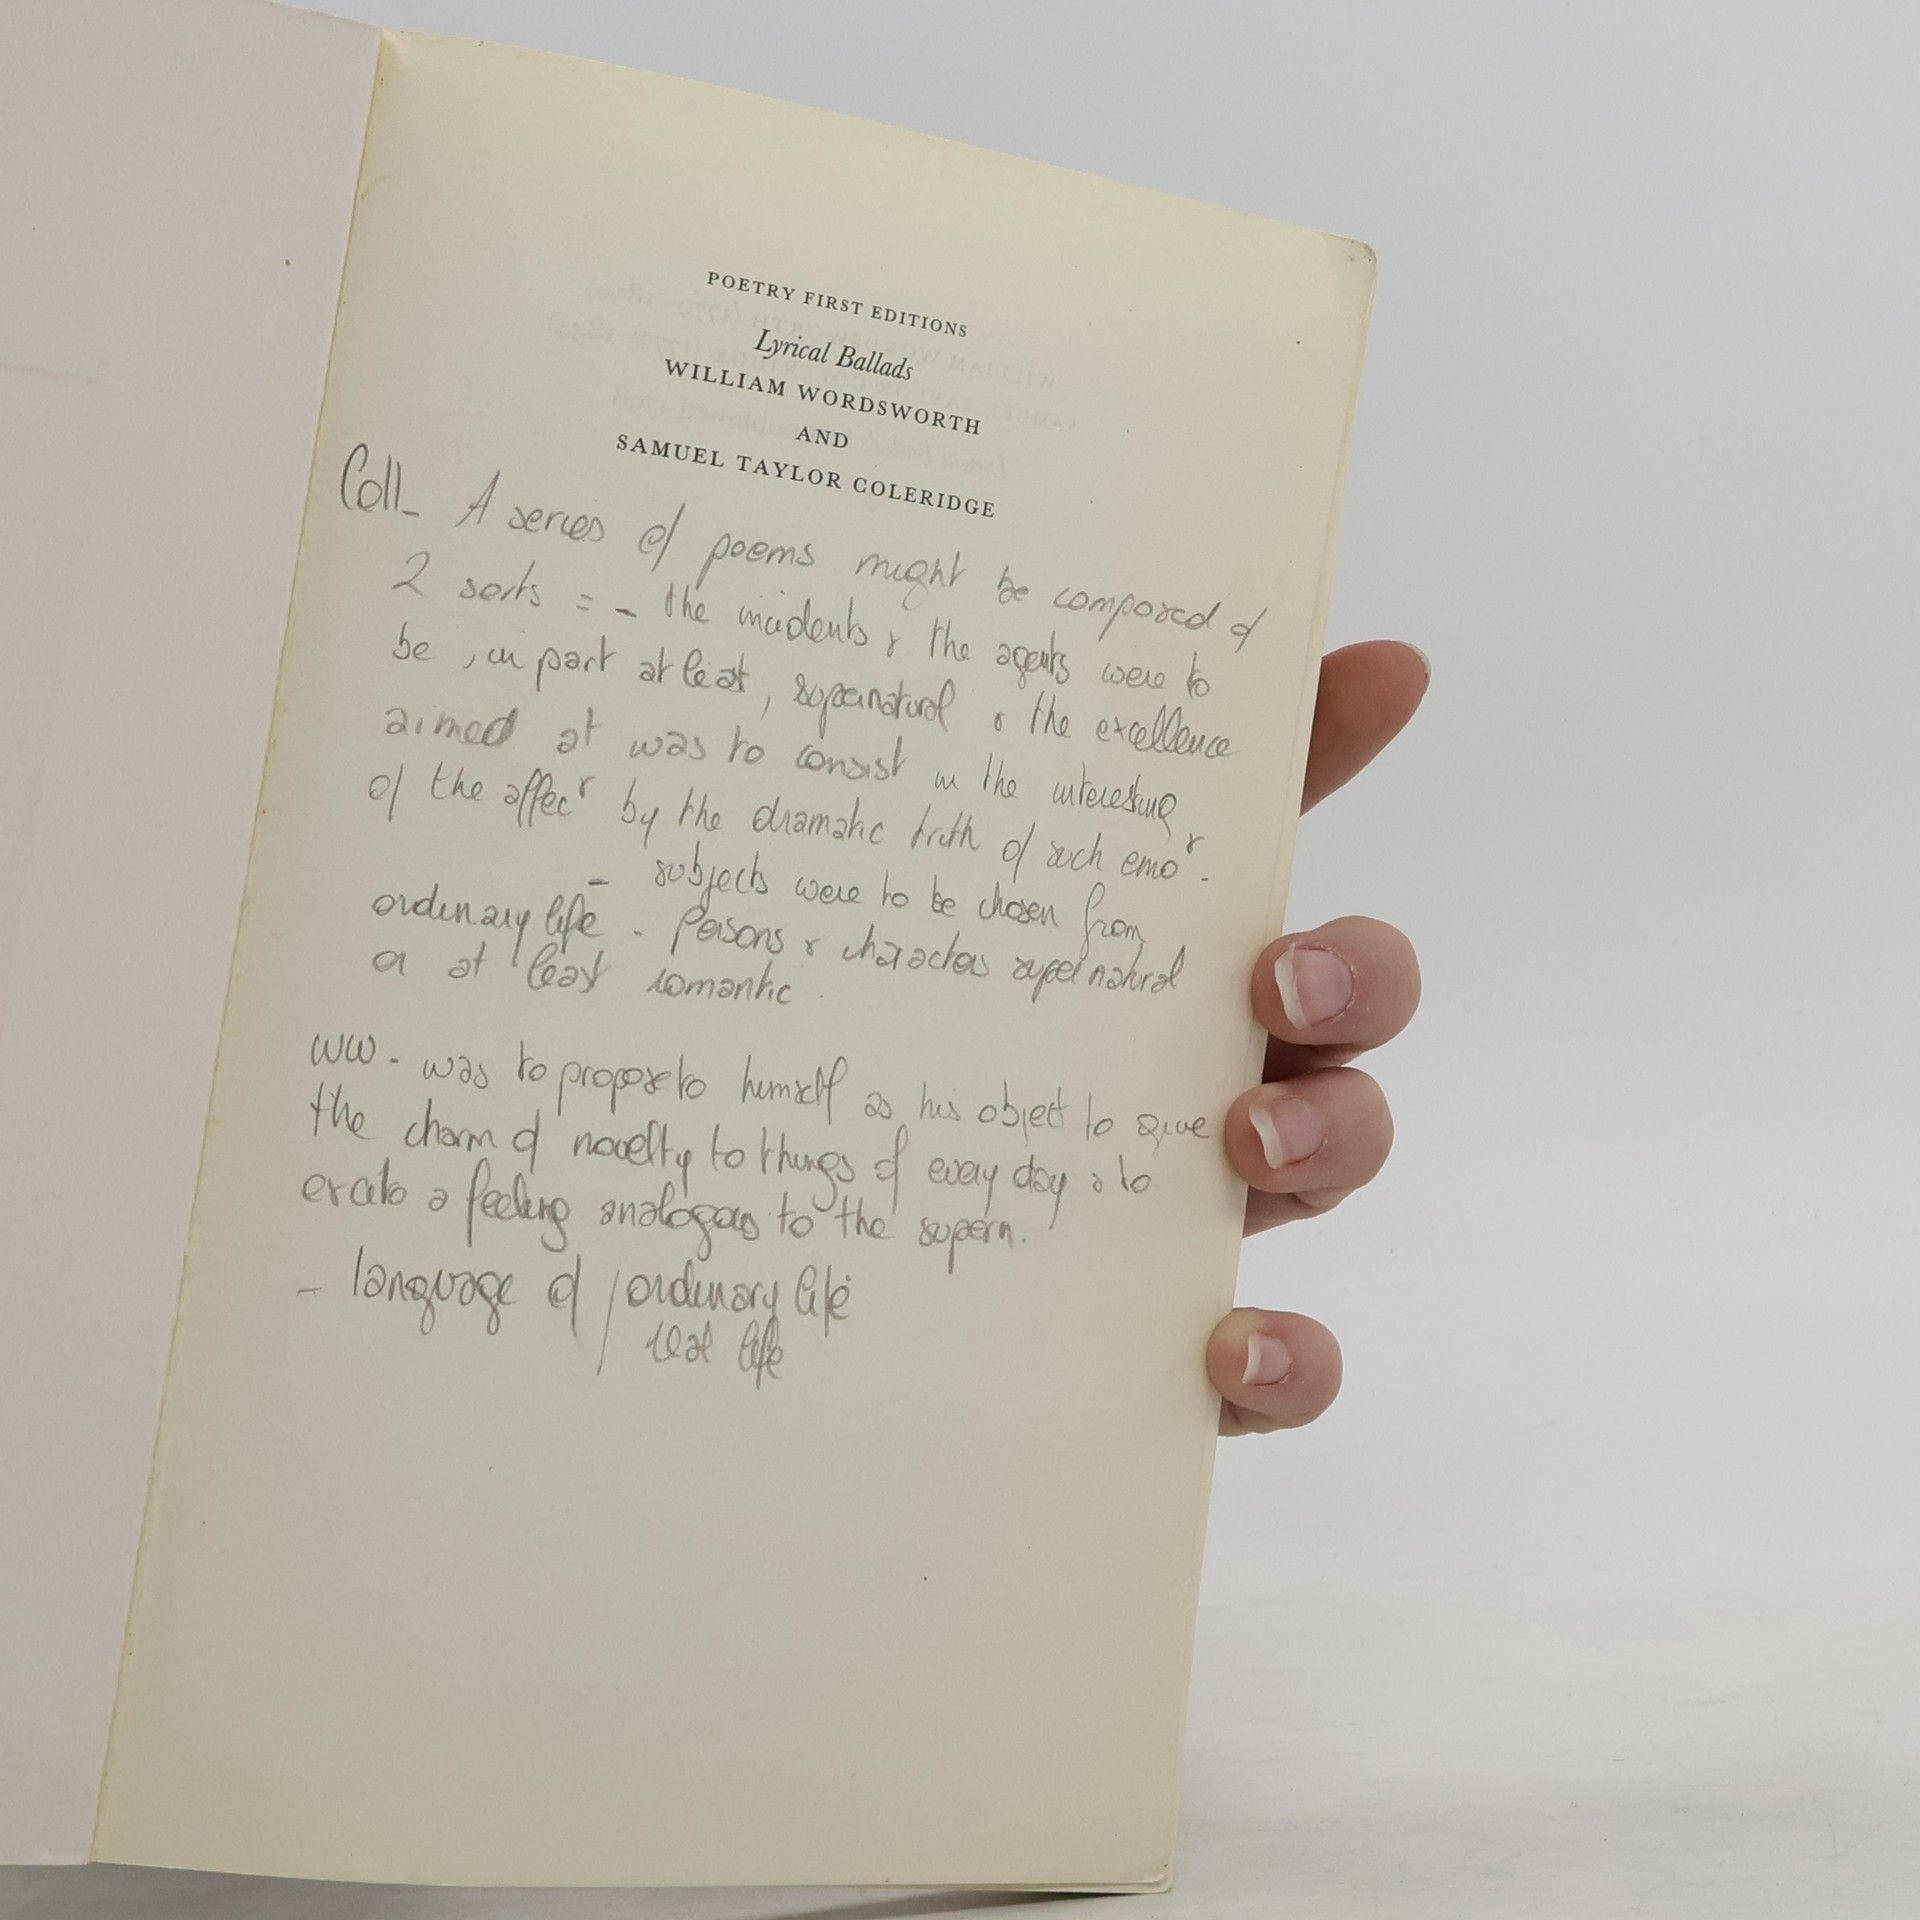 POETRY FIRST EDITIONS
Lyrical Ballads
WILLIAM WORDSWORTH
AND
SAMUEL TAYLOR COLERIDGE
Coll_ A series of poems might be composed of
2 sorts = - the incidents & the agents were to
be, in part at least, supernatural & the excellence
aimed at was to consist in the interesting
of the affec° by the dramatic truth of such emo° -
- subjects were to be chosen from
ordinary life - Persons & characters supernatural
or at least romantic.
WW - was to propose to himself as his object to give
the charm of novelty to things of every day & to
excite a feeling analogous to the supern.
- language of / ordinary life
real life